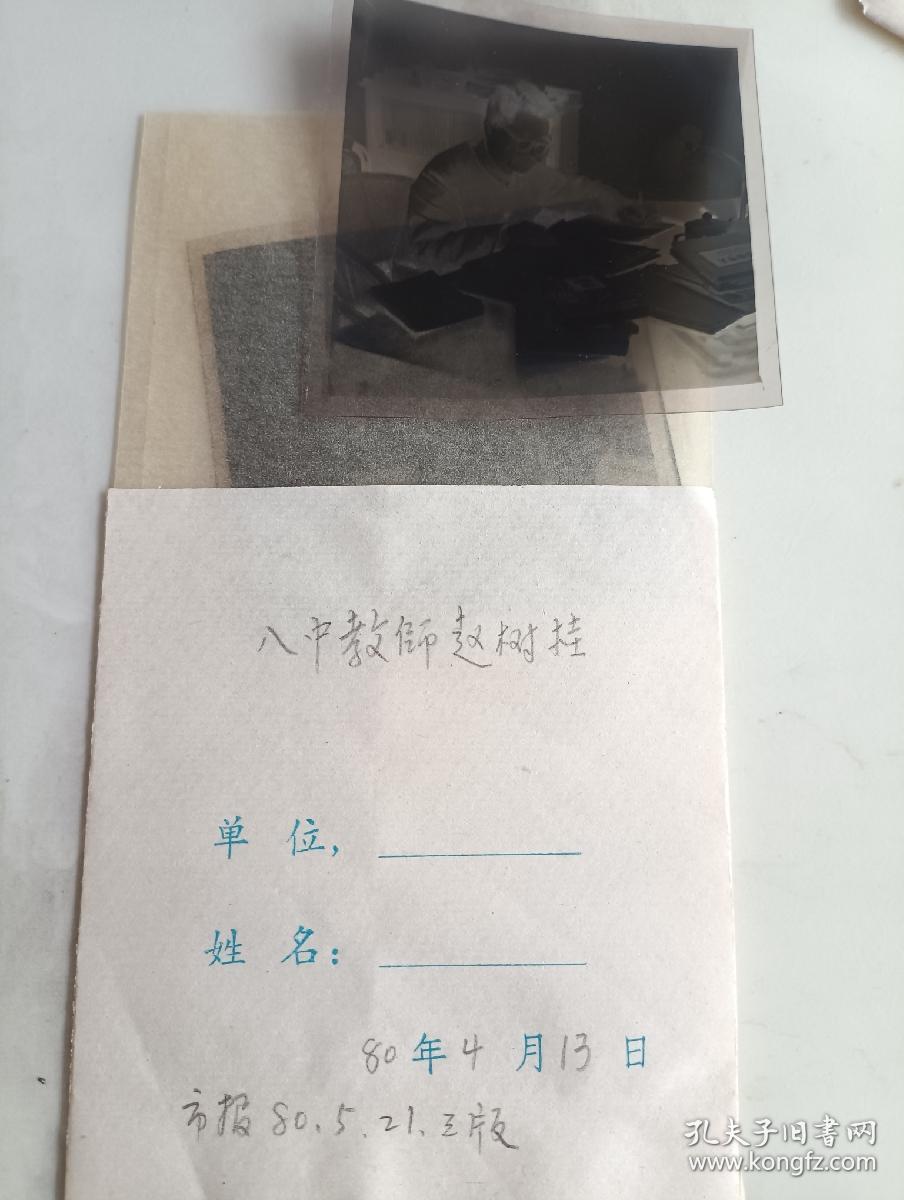 八中教師赵树桂
单 位，
姓 名：
80年4月13日
市报80.5.21.三版
孔夫子旧书网
www.kongfz.com